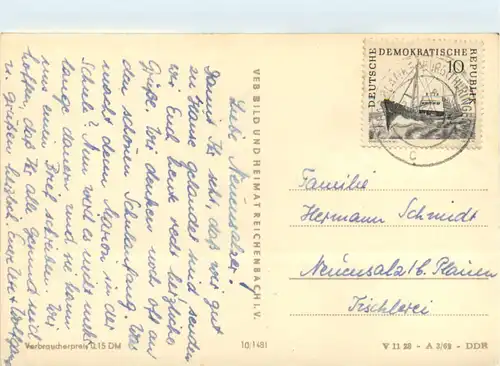 Liebe Neuensalzer!
Damit Ihr seht, daß wir gut
zu Hause gelandet sind senden
wir Euch heute recht herzliche
Grüße. Wir denken noch oft an
den schönen Schulanfang. Was
macht denn in der
Schule? Nun wird es nicht mehr
lange dauern und sie kann
uns einen Brief schreiben. Wir
hoffen, daß Ihr alle gesund seid
u. grüßen herzlich. Eure u. Wolfgang
Verbraucherpreis 0,15 DM
VEB BILD UND HEIMAT REICHENBACH I. V.
10/1481
DEUTSCHE DEMOKRATISCHE REPUBLIK
10
c
Familie
Hermann Schmidt
Neuensalz/b. Plauen
Tischlerei
V 11 28 - A 3/62 - DDR